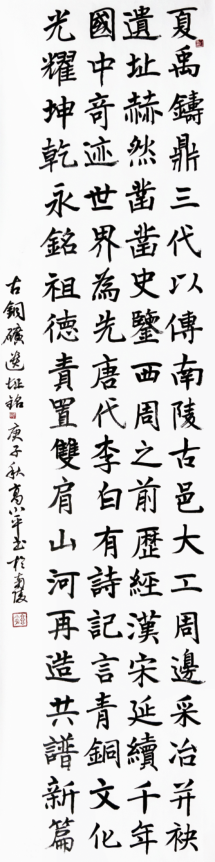 夏禹鑄鼎三代以傳南陵古邑大工周邊采冶并袂
遺址赫然凿凿史鑒西周之前歷經漢宋延續千年
國中奇迹世界為先唐代李白有詩記言青銅文化
光耀坤乾永銘祖德責置雙肩山河再造共譜新篇
古銅礦遺址銘庚子秋高小平書於南陵